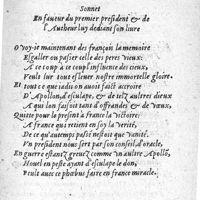 Sonnet
En faueur du premier president & de
l'Autheur luy dediant son liure
O voy-ie maintenant des françois la memoire
Esgaller ou passer celle des peres vieux:
A ce coup a ce coup l'influence des cieux,
Veult sur tout esleuer nostre immortelle gloire.
Et tout ce que iadis on auoit accordé faire
D'Apollon, d'esculape, & de telz aultres dieux
A qui lon faisoit tant d'offrandes & de vœux,
Quitte pour le present à france la victoire:
A france qui retient en soy la verité,
De ce qu'autemps passé n'estoit que vanité.
Vn president nous sert par son conseil d'oracle,
En guerre estant greuez comme vn aultre Apollo,
Houel en peste ayant d'esculape le don,
Peult auec ce phœbus faire en france miracle.